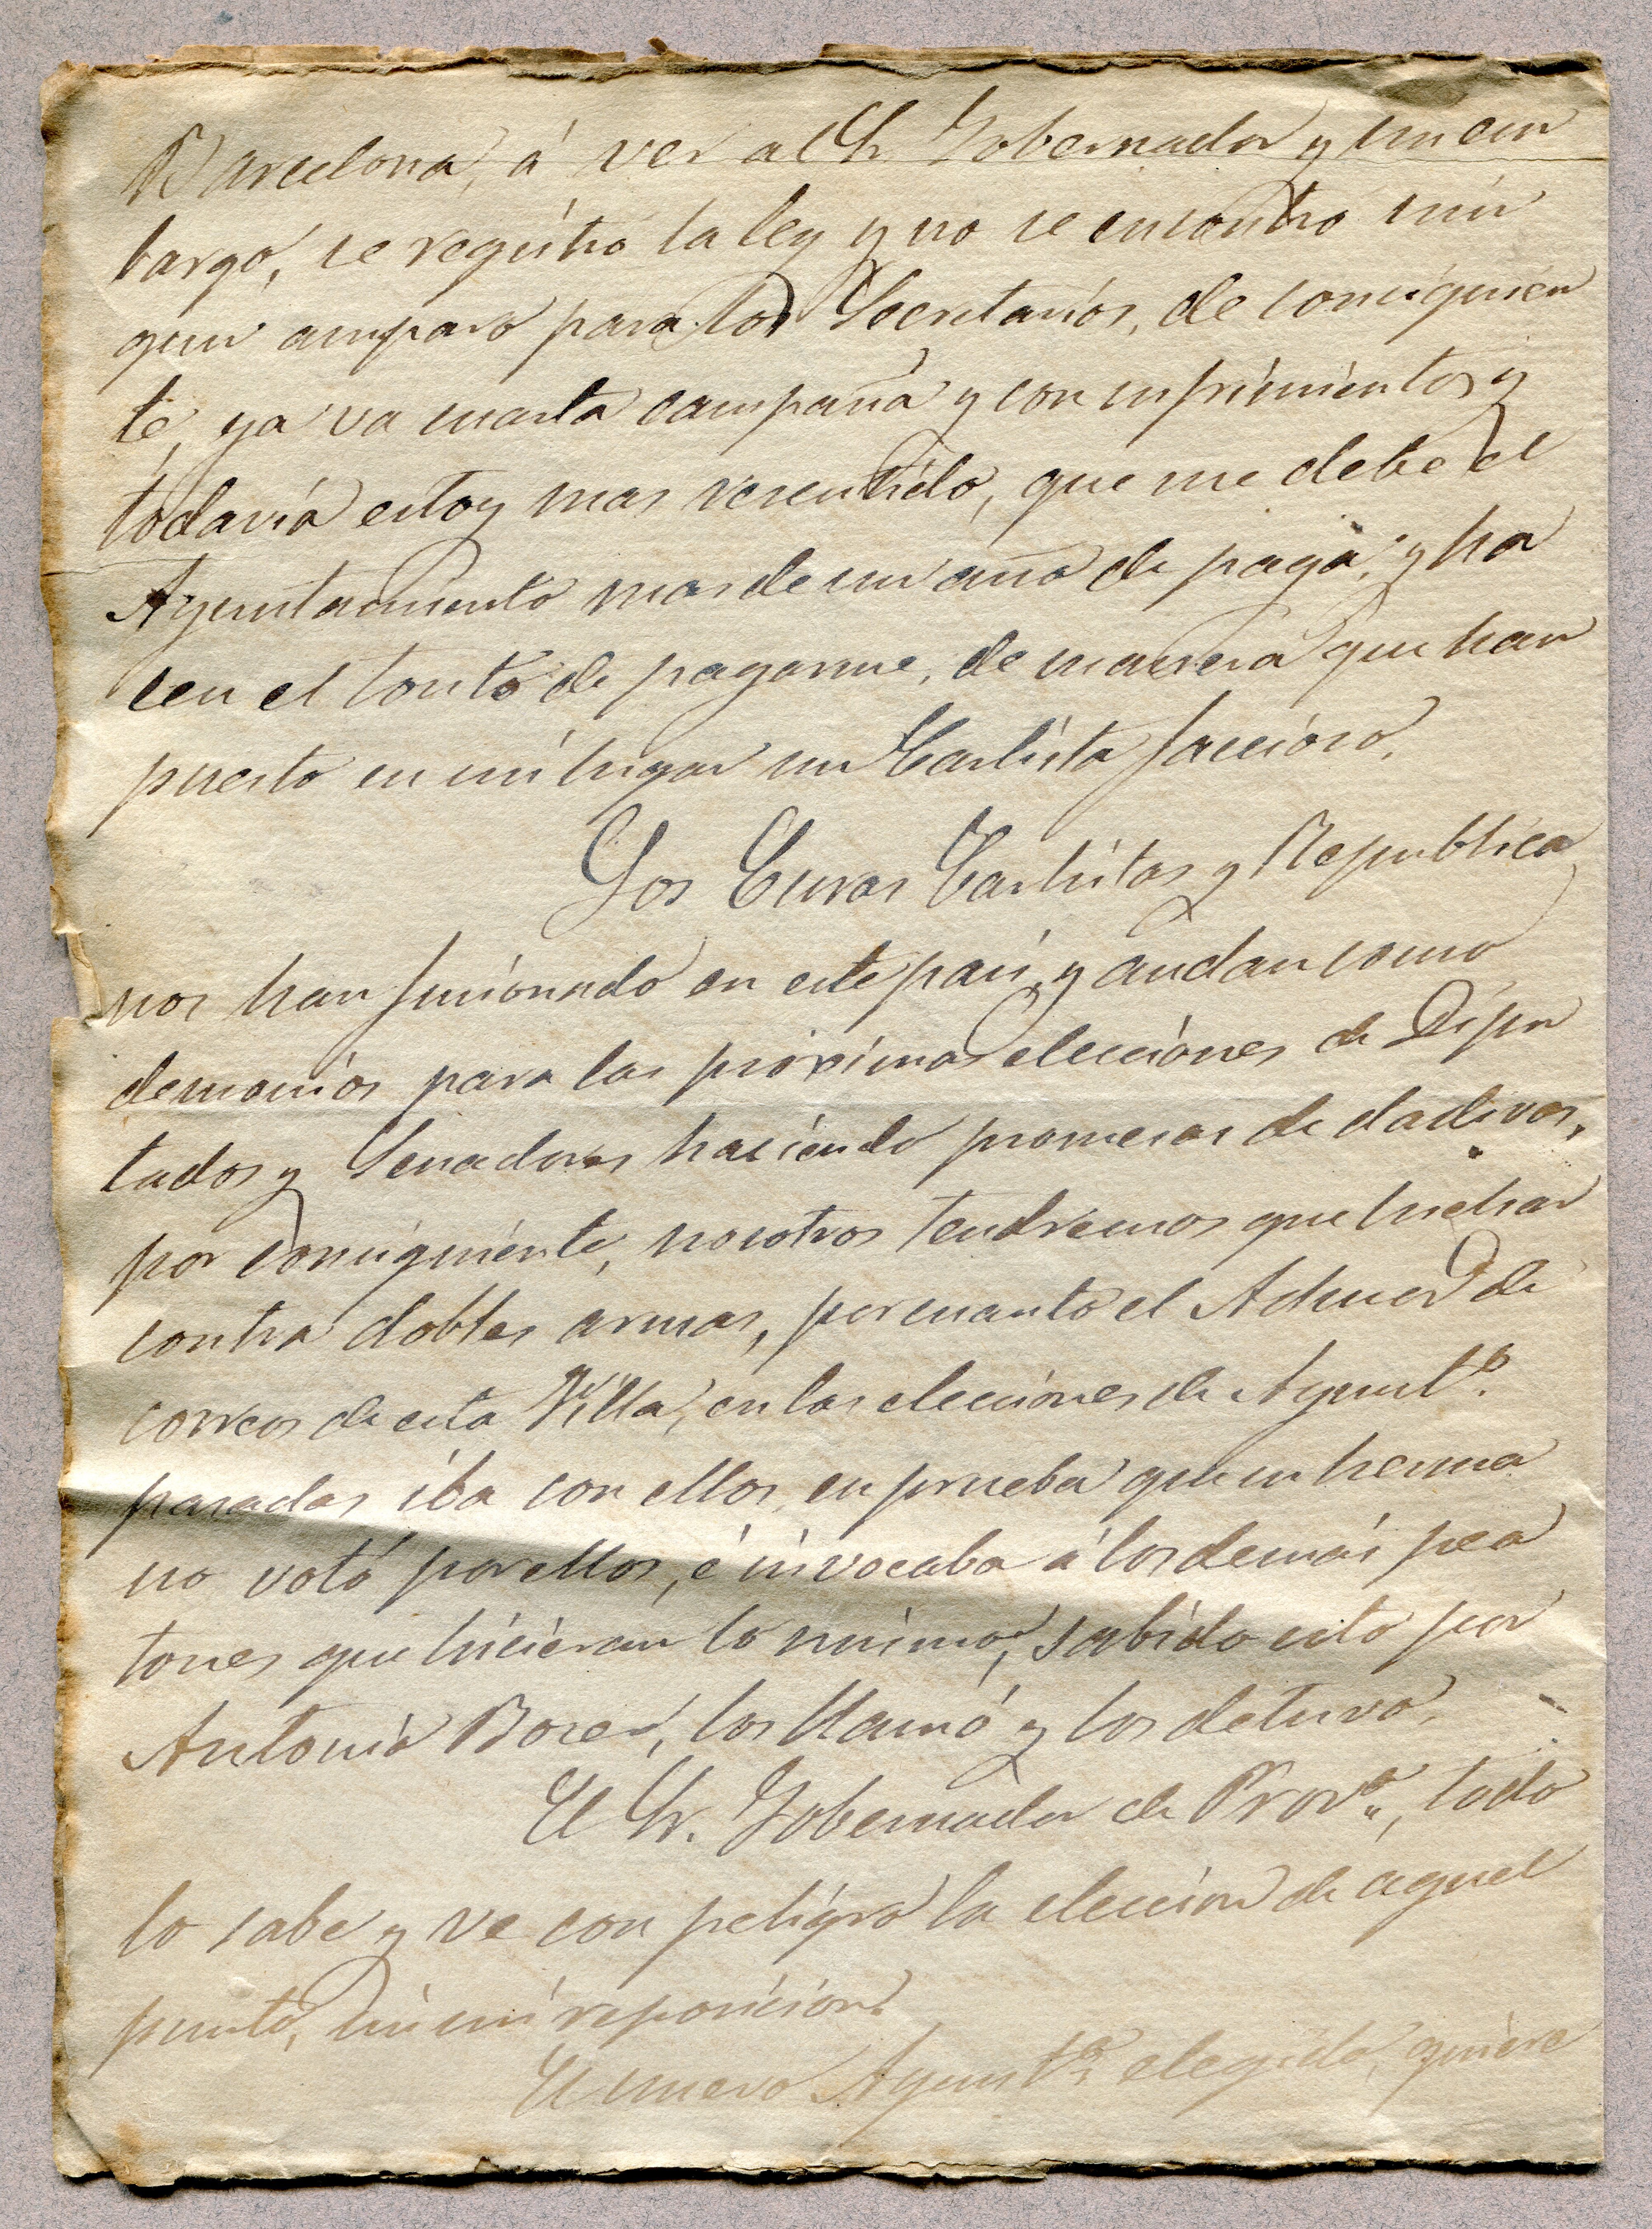 Barcelona, á ver al Sr Gobernador y sin em
bargo, se registró la ley y no se encontró nin
gun amparo para los Secretarios, de consiguien
te, ya va cuarta campaña y con sufrimientos y
todavía estoy mas resentido, que me debe el
Ayuntamiento mas de un año de paga, y ha
cen el tonto de pagarme, de manera que han
puesto en mi lugar un Carlista faccioso.
Los Curas Carlistas y Republica
nos han fusionado en este pais, y andan como
demonios para las próximas elecciones de Dipu
tados y Senadores haciendo promesas de dadivas,
por consiguiente, nosotros tendremos que luchar
contra dobles armas, por cuanto el Admor de
correos de esta Villa, en las elecciones de Ayunto.
pasadas iba con ellos, en prueba que su herma
no votó por ellos, é invocaba á los demás pea
tones que hicieran lo mismo, sabido esto por
Antonio Borer, los llamó y los detuvo.
El Sr. Gobernador de Prova, todo
lo sabe y ve con peligro la eleccion de aquel
punto, sin mi reposicion.
El nuevo Ayunto elegido, quiere